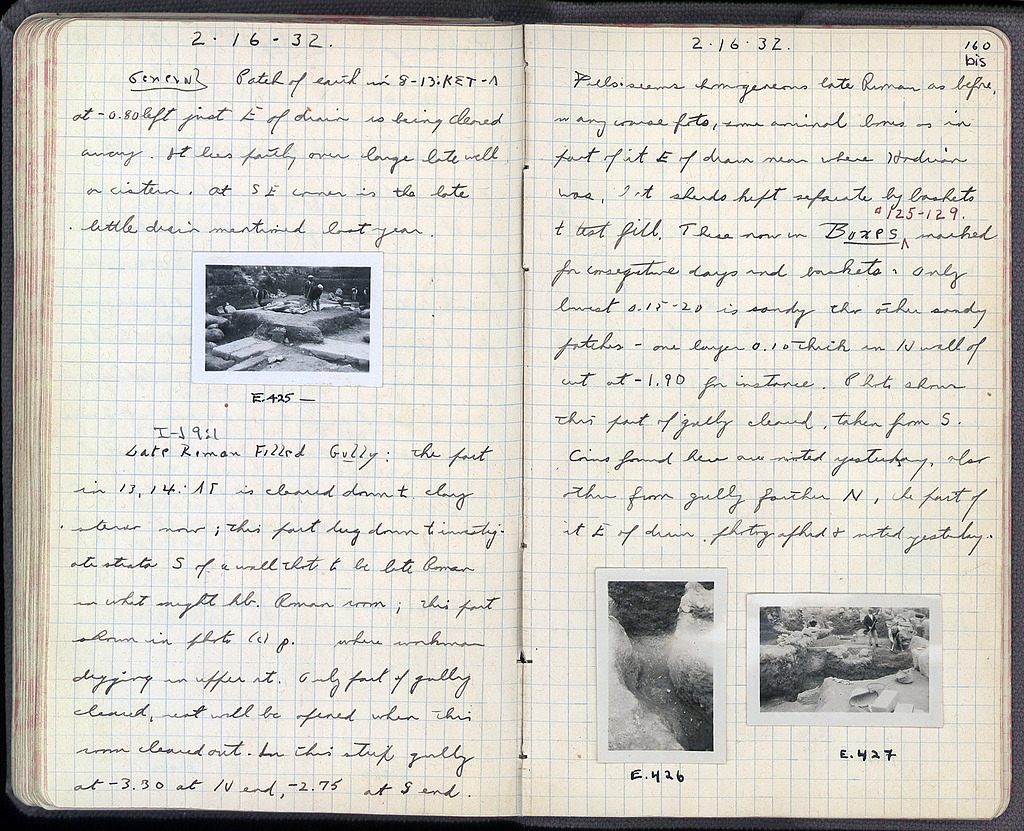 2·16-32.
General Patch of earth in 8-13:
at -0.80 left just E of drain is being cleared
away. It lies partly over large late well
or cistern. At SE corner is the late
little drain mentioned last year.
E.425 —
Late Roman Filled Gully: the part
in 13, 14: is cleared down to clay
now; this part dug down to investig-
ate strata S of a wall that to be late Roman
in what might be Roman room; this part
shown in photo (c) p. where workman
digging in upper it. Only part of gully
cleared, rest will be opened when this
room cleared out. In this strip gully
at -3.30 at N end, -2.75 at S end.
2·16·32.
160
bis
seems homogeneous late Roman as before,
many coarse frts, some animal bones as in
part of it E of drain near where Hadrian
was. sherds kept separate by baskets
#125-129.
fill. These now in Boxes marked
for consecutive days and baskets. Only
lowest 0.15-20 is sandy other sandy
patches - one larger 0.10 thick in N wall of
cut at -1.90 for instance. Photo shows
this part of gully cleared, taken from S.
Coins found here are noted yesterday, also
other from gully farther N, the part of
it E of drain photographed & noted yesterday.
E.426
E.427